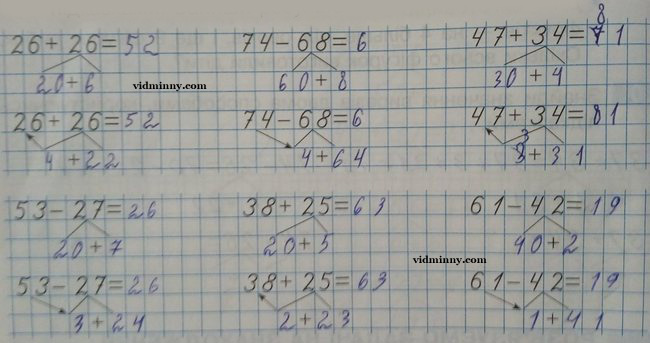 8
26+26=52 74-68=6 47+34=71
20+6 60+8 30+4
vidminny.com
26+26=52 74-68=6 47+34=81
3
4+22 4+64 8+31
53-27=26 38+25=63 61-42=19
20+7 20+5 40+2
vidminny.com
53-27=26 38+25=63 61-42=19
3+24 2+23 1+41